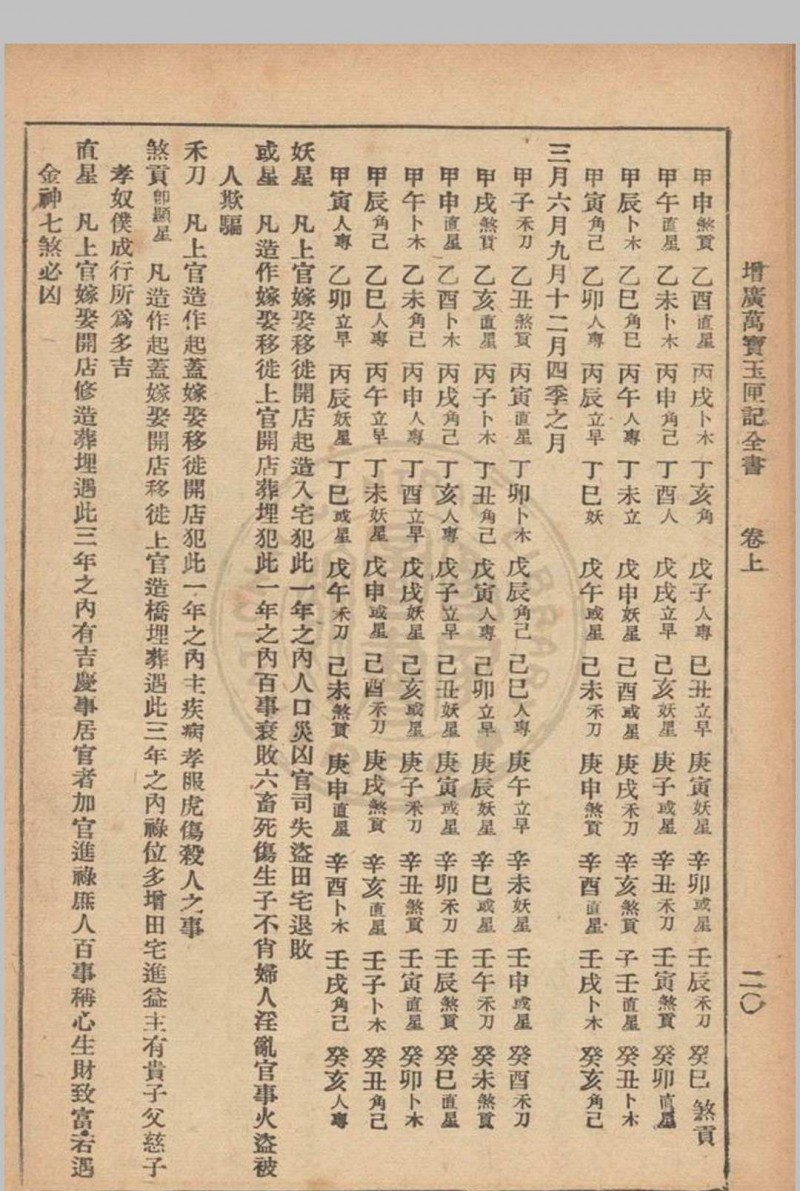 增廣萬寶玉匣記全書　卷上　二〇
甲申煞貢　乙酉直星　丙戌卜木　丁亥角　戊子人專　已丑立早　庚寅妖星　辛卯或星　壬辰禾刀　癸巳煞貢
甲午直星　乙未卜木　丙申角己　丁酉人　戊戌立早　己亥妖星　庚子或星　辛丑禾刀　壬寅煞貢　癸卯直星
甲辰卜木　乙巳角巳　丙午人專　丁未立　戊申妖星　己酉或星　庚戌禾刀　辛亥煞貢　子壬直星　癸丑卜木
甲寅角己　乙卯人專　丙辰立早　丁巳妖　戊午或星　己未禾刀　庚申煞貢　辛酉直星　壬戌卜木　癸亥角己
三月六月九月十二月四季之月
甲子禾刀　乙丑煞貢　丙寅直星　丁卯卜木　戊辰角己　己巳人專　庚午立早　辛未妖星　壬申或星　癸酉禾刀
甲戌煞貢　乙亥直星　丙子卜木　丁丑角己　戊寅人專　己卯立早　庚辰妖星　辛巳或星　壬午禾刀　癸未煞貢
甲申直星　乙酉卜木　丙戌角己　丁亥人專　戊子立早　己丑妖星　庚寅或星　辛卯禾刀　壬辰煞貢　癸巳直星
甲午卜木　乙未角已　丙申人專　丁酉立早　戊戌妖星　己亥或星　庚子禾刀　辛丑煞貢　壬寅直星　癸卯卜木
甲辰角己　乙巳人專　丙午立早　丁未妖星　戊申或星　己酉禾刀　庚戌煞貢　辛亥直星　壬子卜木　癸丑角己
甲寅人專　乙卯立早　丙辰妖星　丁巳或星　戊午禾刀　己未煞貢　庚申直星　辛酉卜木　壬戌角己　癸亥人專
妖星　凡上官嫁娶移徙開店起造入宅犯此一年之內人口災凶官司失盜田宅退敗
或星　凡造作嫁娶移徙上官開店葬埋犯此一年之內百事衰敗六畜死傷生子不肖婦人淫亂官事火盜被
人欺騙
禾刀　凡上官造作起蓋嫁娶移徙開店犯此一年之內主疾病孝服虎傷殺人之事
煞貢即顯星　凡造作起蓋嫁娶開店移徙上官造橋埋葬遇此三年之內祿位多增田宅進益主有貴子父慈子
孝奴僕成行所爲多吉
直星　凡上官嫁娶開店修造葬埋遇此三年之內有吉慶事居官者加官進祿庶人百事稱心生財致富若遇
金神七煞必凶